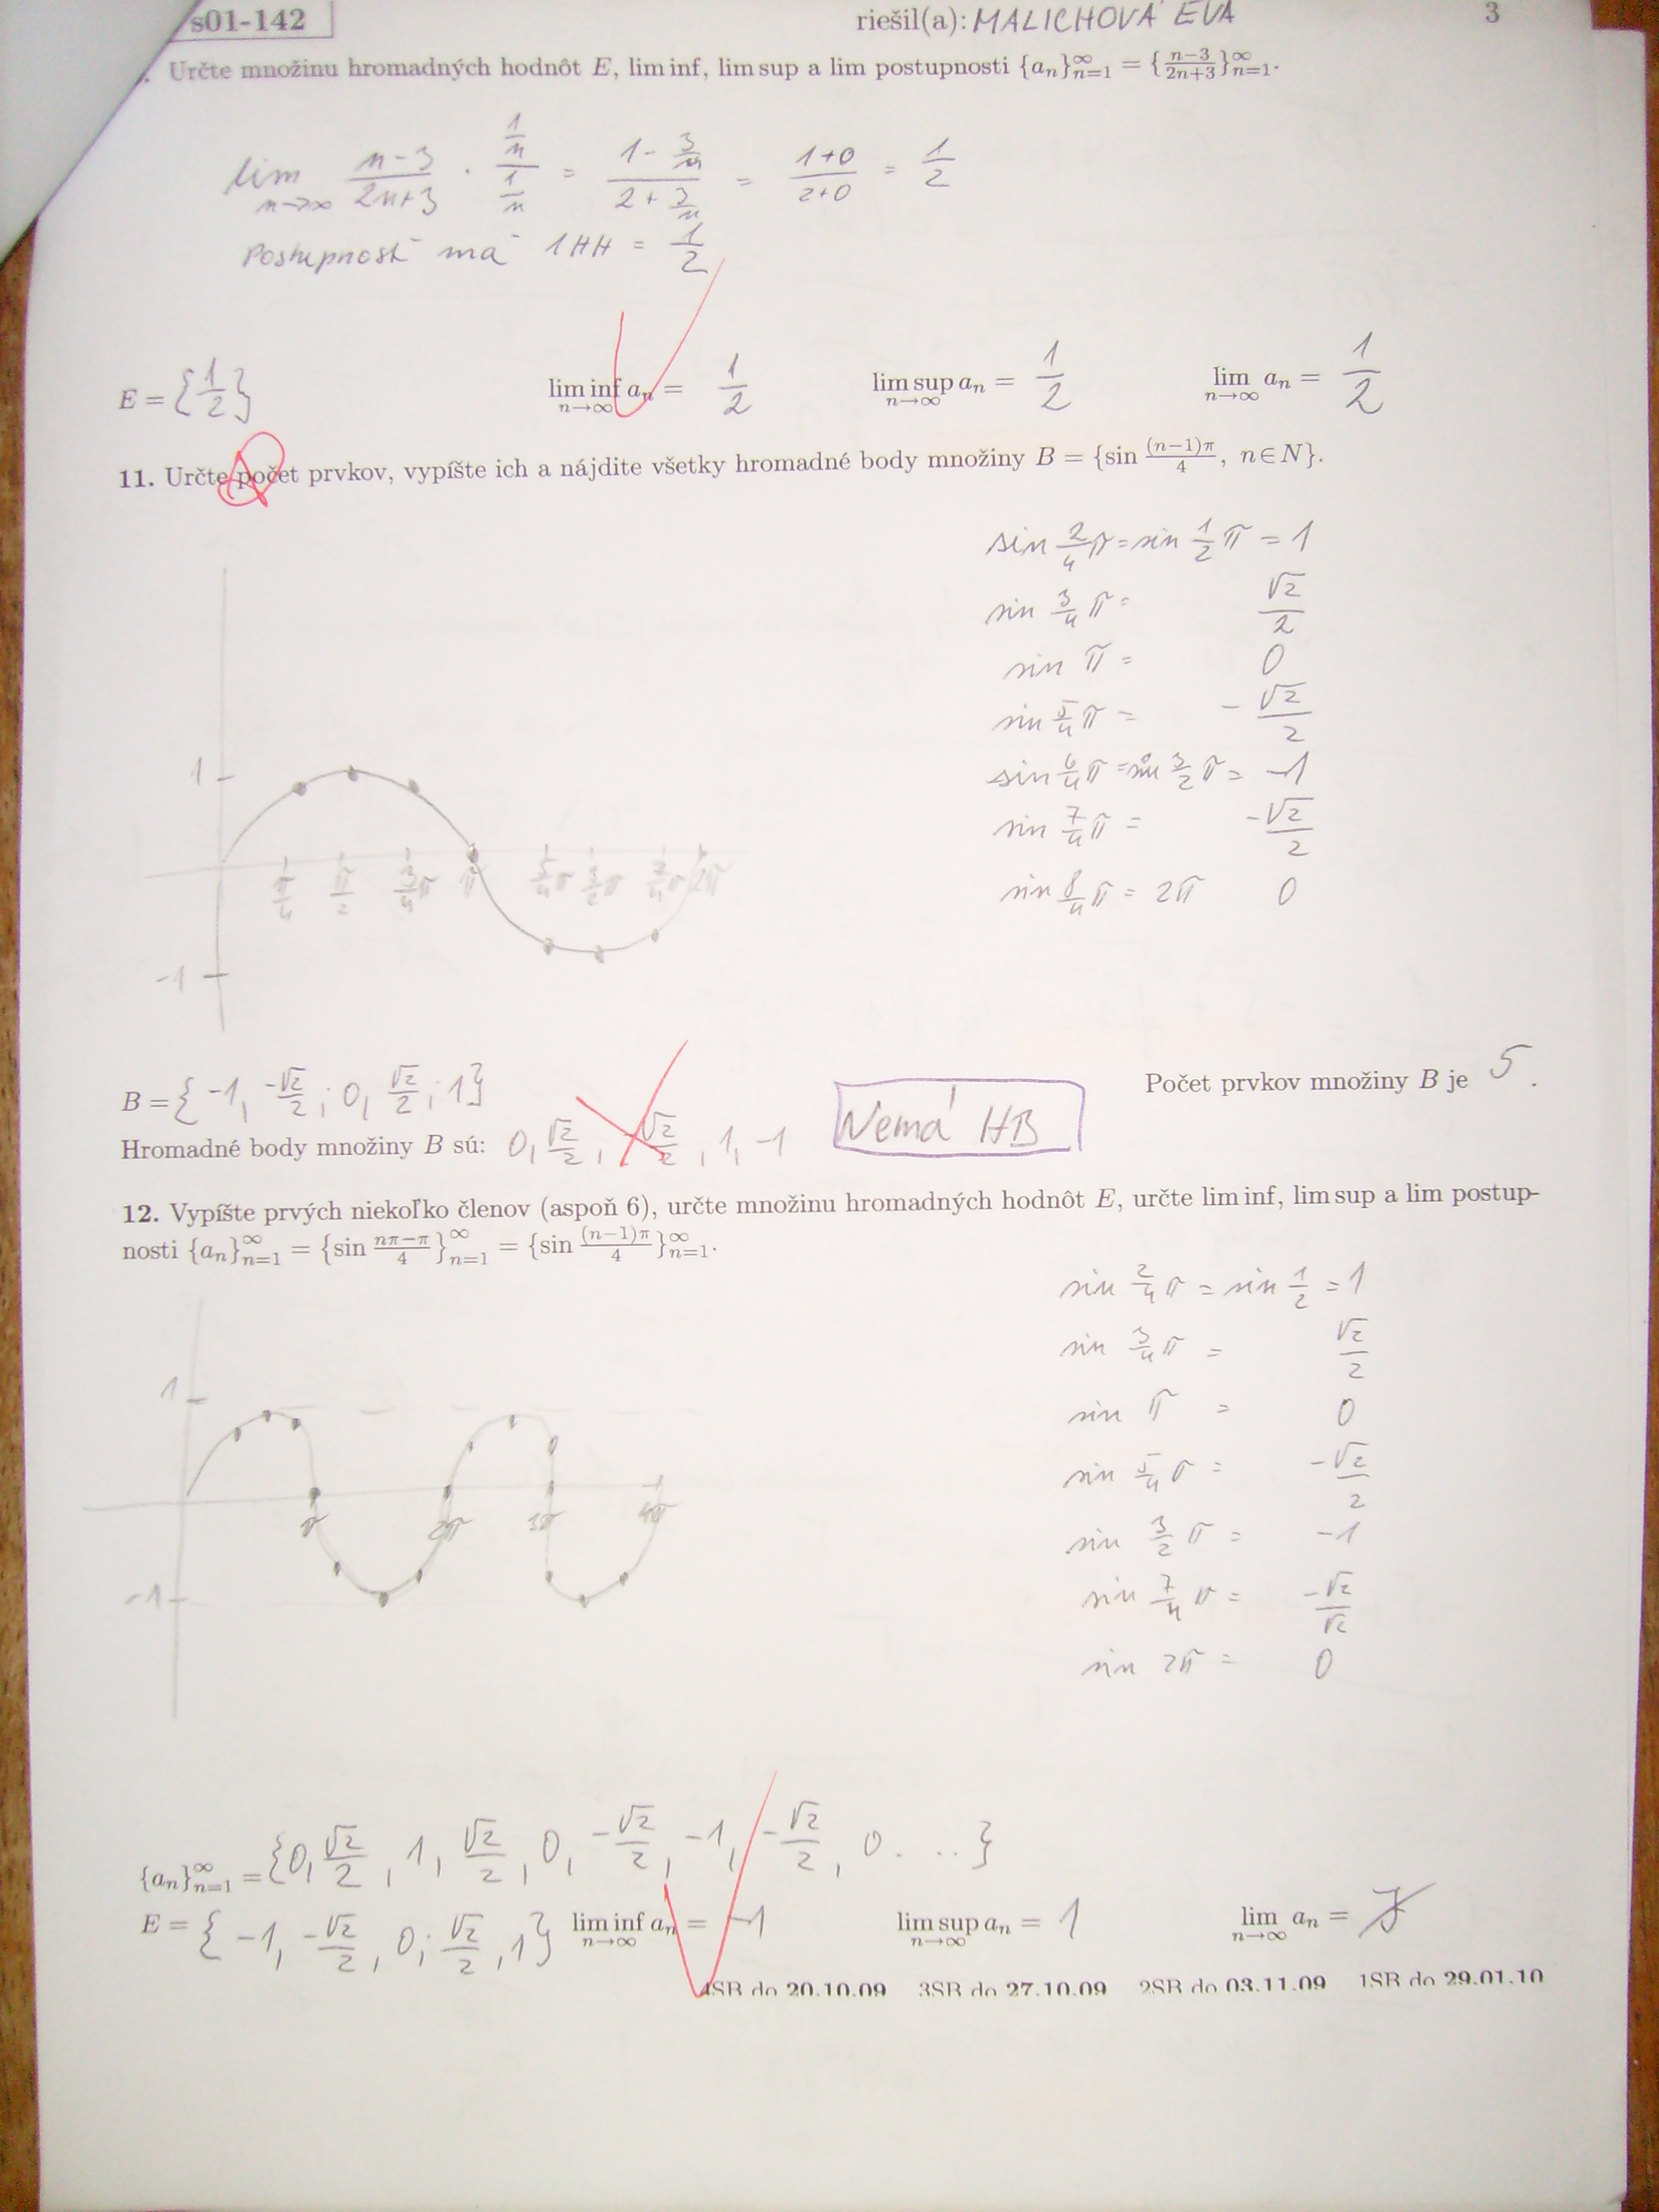 s01-142 riešil(a): MALICHOVÁ EVA 3
. Určte množinu hromadných hodnôt E, lim inf, lim sup a lim postupnosti {aₙ}ₙ₌₁^∞ = {(n−3)/(2n+3)}ₙ₌₁^∞.
lim n→∞ (n−3)/(2n+3) · (1/n)/(1/n) = (1−3/n)/(2+3/n) = (1+0)/(2+0) = 1/2
Postupnosť má 1HH = 1/2
E = {1/2} lim inf n→∞ aₙ = 1/2 lim sup n→∞ aₙ = 1/2 lim n→∞ aₙ = 1/2
11. Určte počet prvkov, vypíšte ich a nájdite všetky hromadné body množiny B = {sin (n−1)π/4, n∈N}.
sin 2/4 π = sin 1/2 π = 1
sin 3/4 π = √2/2
sin π = 0
sin 5/4 π = −√2/2
sin 6/4 π = sin 3/2 π = −1
sin 7/4 π = −√2/2
sin 8/4 π = 2π 0
1
π/4 π/2 3/4 π π 5/4 π 3/2 π 7/4 π 2π
−1
B = {−1, −√2/2; 0, √2/2; 1} Počet prvkov množiny B je 5.
Hromadné body množiny B sú: 0, √2/2, −√2/2, 1, −1 Nemá HB
12. Vypíšte prvých niekoľko členov (aspoň 6), určte množinu hromadných hodnôt E, určte lim inf, lim sup a lim postup-
nosti {aₙ}ₙ₌₁^∞ = {sin (nπ−π)/4}ₙ₌₁^∞ = {sin (n−1)π/4}ₙ₌₁^∞.
sin 2/4 π = sin 1/2 = 1
sin 3/4 π = √2/2
sin π = 0
sin 5/4 π = −√2/2
sin 3/2 π = −1
sin 7/4 π = −√2/√2
sin 2π = 0
1
π 2π 3π 4π
−1
{aₙ}ₙ₌₁^∞ = {0, √2/2, 1, √2/2, 0, −√2/2, −1, −√2/2, 0...}
E = {−1, −√2/2, 0; √2/2, 1} lim inf n→∞ aₙ = −1 lim sup n→∞ aₙ = 1 lim n→∞ aₙ = ∄
4SB do 20.10.09 3SB do 27.10.09 2SB do 03.11.09 1SB do 29.01.10